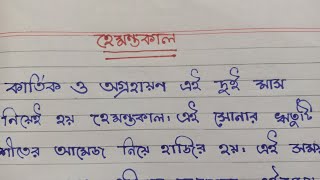 হেমন্তকাল
কার্তিক ও অগ্রহায়ন এই দুই মাস
নিয়েই হয় হেমন্তকাল। এই সোনার ঋতুটি
শীতের আমেজ নিয়ে হাজির হয়। এই সময়